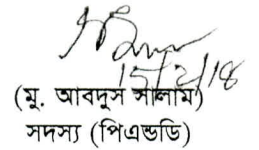 15/2/18
(মু. আবদুস সালাম)
সদস্য (পিএন্ডডি)